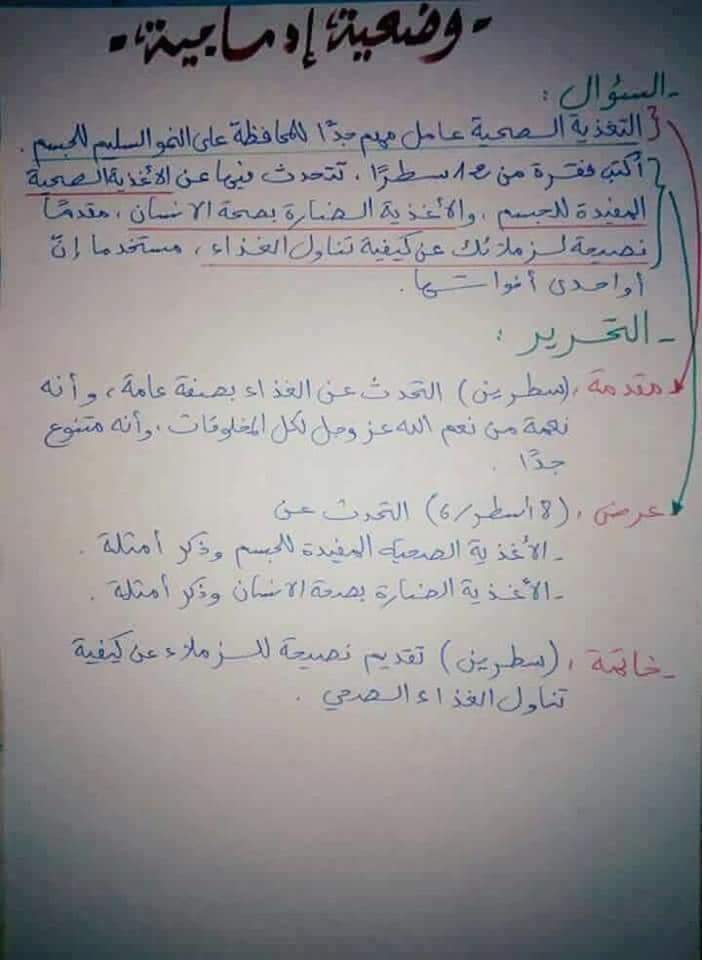 - وضعية إدماجية -
- السؤال :
التغذية الصحية عامل مهم جدًا للمحافظة على النمو السليم للجسم .
أكتب فقرة من 12 سطرًا ، تتحدث فيها عن الأغذية الصحية
المفيدة للجسم ، والأغذية الضارة بصحة الانسان ، مقدمًا
نصيحة لزملائك عن كيفية تناول الغذاء ، مستخدما إنّ
أو احدى أخواتها .
- التحرير :
مقدمة : (سطرين) التحدث عن الغذاء بصفة عامة ، وأنه
نعمة من نعم الله عز وجل لكل المخلوقات ، وأنه متنوع
جدًا .
عرض : (8 أسطر/6) التحدث عن
- الأغذية الصحية المفيدة للجسم وذكر أمثلة .
- الأغذية الضارة بصحة الانسان وذكر أمثلة .
- خاتمة : (سطرين) تقديم نصيحة للزملاء عن كيفية
تناول الغذاء الصحي .